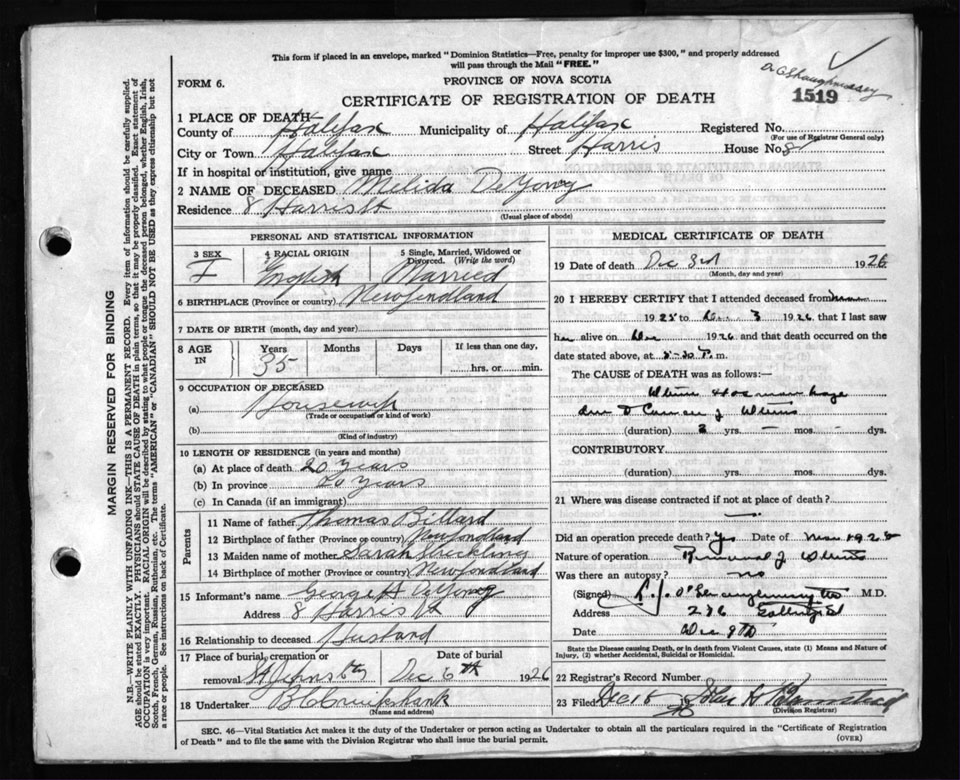 This form if placed in an envelope, marked "Dominion Statistics—Free, penalty for improper use $300," and properly addressed
will pass through the Mail "FREE."
FORM 6.
PROVINCE OF NOVA SCOTIA
CERTIFICATE OF REGISTRATION OF DEATH
1519
1 PLACE OF DEATH
County of Halifax Municipality of Halifax Registered No.
(For use of Registrar General only)
City or Town Halifax Street Harris House No. 8
If in hospital or institution, give name
2 NAME OF DECEASED Melida DeYoung
Residence 8 Harris St
(Usual place of abode)
PERSONAL AND STATISTICAL INFORMATION
3 SEX 4 RACIAL ORIGIN 5 Single, Married, Widowed or Divorced. (Write the word)
F English Married
6 BIRTHPLACE (Province or country) Newfondland
7 DATE OF BIRTH (month, day and year)
8 AGE IN Years Months Days If less than one day,
35 hrs. or min.
9 OCCUPATION OF DECEASED
(a) Housewife
(Trade or occupation or kind of work)
(b)
(Kind of industry)
10 LENGTH OF RESIDENCE (in years and months)
(a) At place of death 20 years
(b) In province 20 years
(c) In Canada (if an immigrant)
Parents
11 Name of father Thomas Billard
12 Birthplace of father (Province or country) Newfondland
13 Maiden name of mother Sarah Strickling
14 Birthplace of mother (Province or country) Newfondland
15 Informant's name George H DeYoung
Address 8 Harris St
16 Relationship to deceased Husband
17 Place of burial, cremation or removal Date of burial
St Johns Dec 6th 1926
18 Undertaker Cruikshank
(Name and address)
MEDICAL CERTIFICATE OF DEATH
19 Date of death Dec 3rd 1926
(Month, day and year)
20 I HEREBY CERTIFY that I attended deceased from
1925 to 3 1926, that I last saw
her alive on 1926 and that death occurred on
date stated above, at P. m.
The CAUSE of DEATH was as follows:—
Uterine
Cancer of Uterus
(duration) yrs. — mos. — dys.
CONTRIBUTORY
(duration) yrs. mos. dys.
21 Where was disease contracted if not at place of death?
Did an operation precede death? Yes Date of
Nature of operation Removal of Uterus
Was there an autopsy? no
(Signed) M.D.
Address St
Date Dec 9th
State the Disease causing Death, or in death from Violent Causes, state (1) Means and Nature of
Injury, (2) whether Accidental, Suicidal or Homicidal.
22 Registrar's Record Number
23 Filed Dec
(Division Registrar)
SEC. 46—Vital Statistics Act makes it the duty of the Undertaker or person acting as Undertaker to obtain all the particulars required in the "Certificate of Registration
of Death" and to file the same with the Division Registrar who shall issue the burial permit.
(OVER)
MARGIN RESERVED FOR BINDING
N.B.—WRITE PLAINLY WITH UNFADING INK—THIS IS A PERMANENT RECORD. Every item of information should be carefully supplied.
AGE should be stated EXACTLY. PHYSICIANS should STATE CAUSE OF DEATH in plain terms, so that it may be properly classified. Exact statement of
OCCUPATION is very important. RACIAL ORIGIN will be described by stating to what people or tongue the deceased person belonged, whether English, Irish,
Scotch, French, German, Russian, Ruthenian, etc. The terms "AMERICAN" or "CANADIAN" SHOULD NOT BE USED as they express citizenship but not
a race or people. See instructions on back of Certificate.